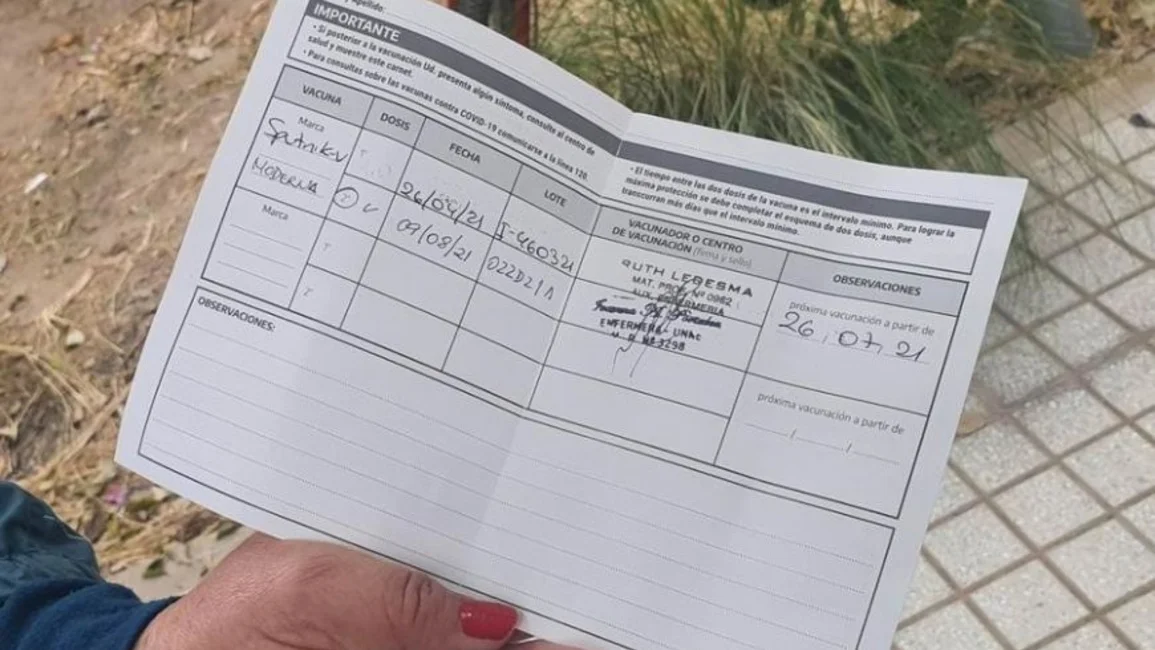 apellido:
IMPORTANTE
• Si posterior a la vacunación Ud. presenta algún síntoma, consulte al centro de
salud y muestre este carnet.
• Para consultas sobre las vacunas contra COVID-19 comunicarse a la línea 120
• El tiempo entre las dos dosis de la vacuna es el intervalo mínimo. Para lograr la
máxima protección se debe completar el esquema de dos dosis, aunque
transcurran más días que el intervalo mínimo.
VACUNA
DOSIS
FECHA
LOTE
VACUNADOR O CENTRO
DE VACUNACIÓN (firma y sello)
OBSERVACIONES
Marca
Sputnik-V
26/04/21
I-460321
RUTH LEDESMA
MAT. PROF. Nº 0962
AUX. ENFERMERIA
próxima vacunación a partir de
26, 07, 21
MODERNA
09/08/21
022D21A
ENFERMERA - UNAC
Nº 3298
Marca
próxima vacunación a partir de
/ /
OBSERVACIONES: